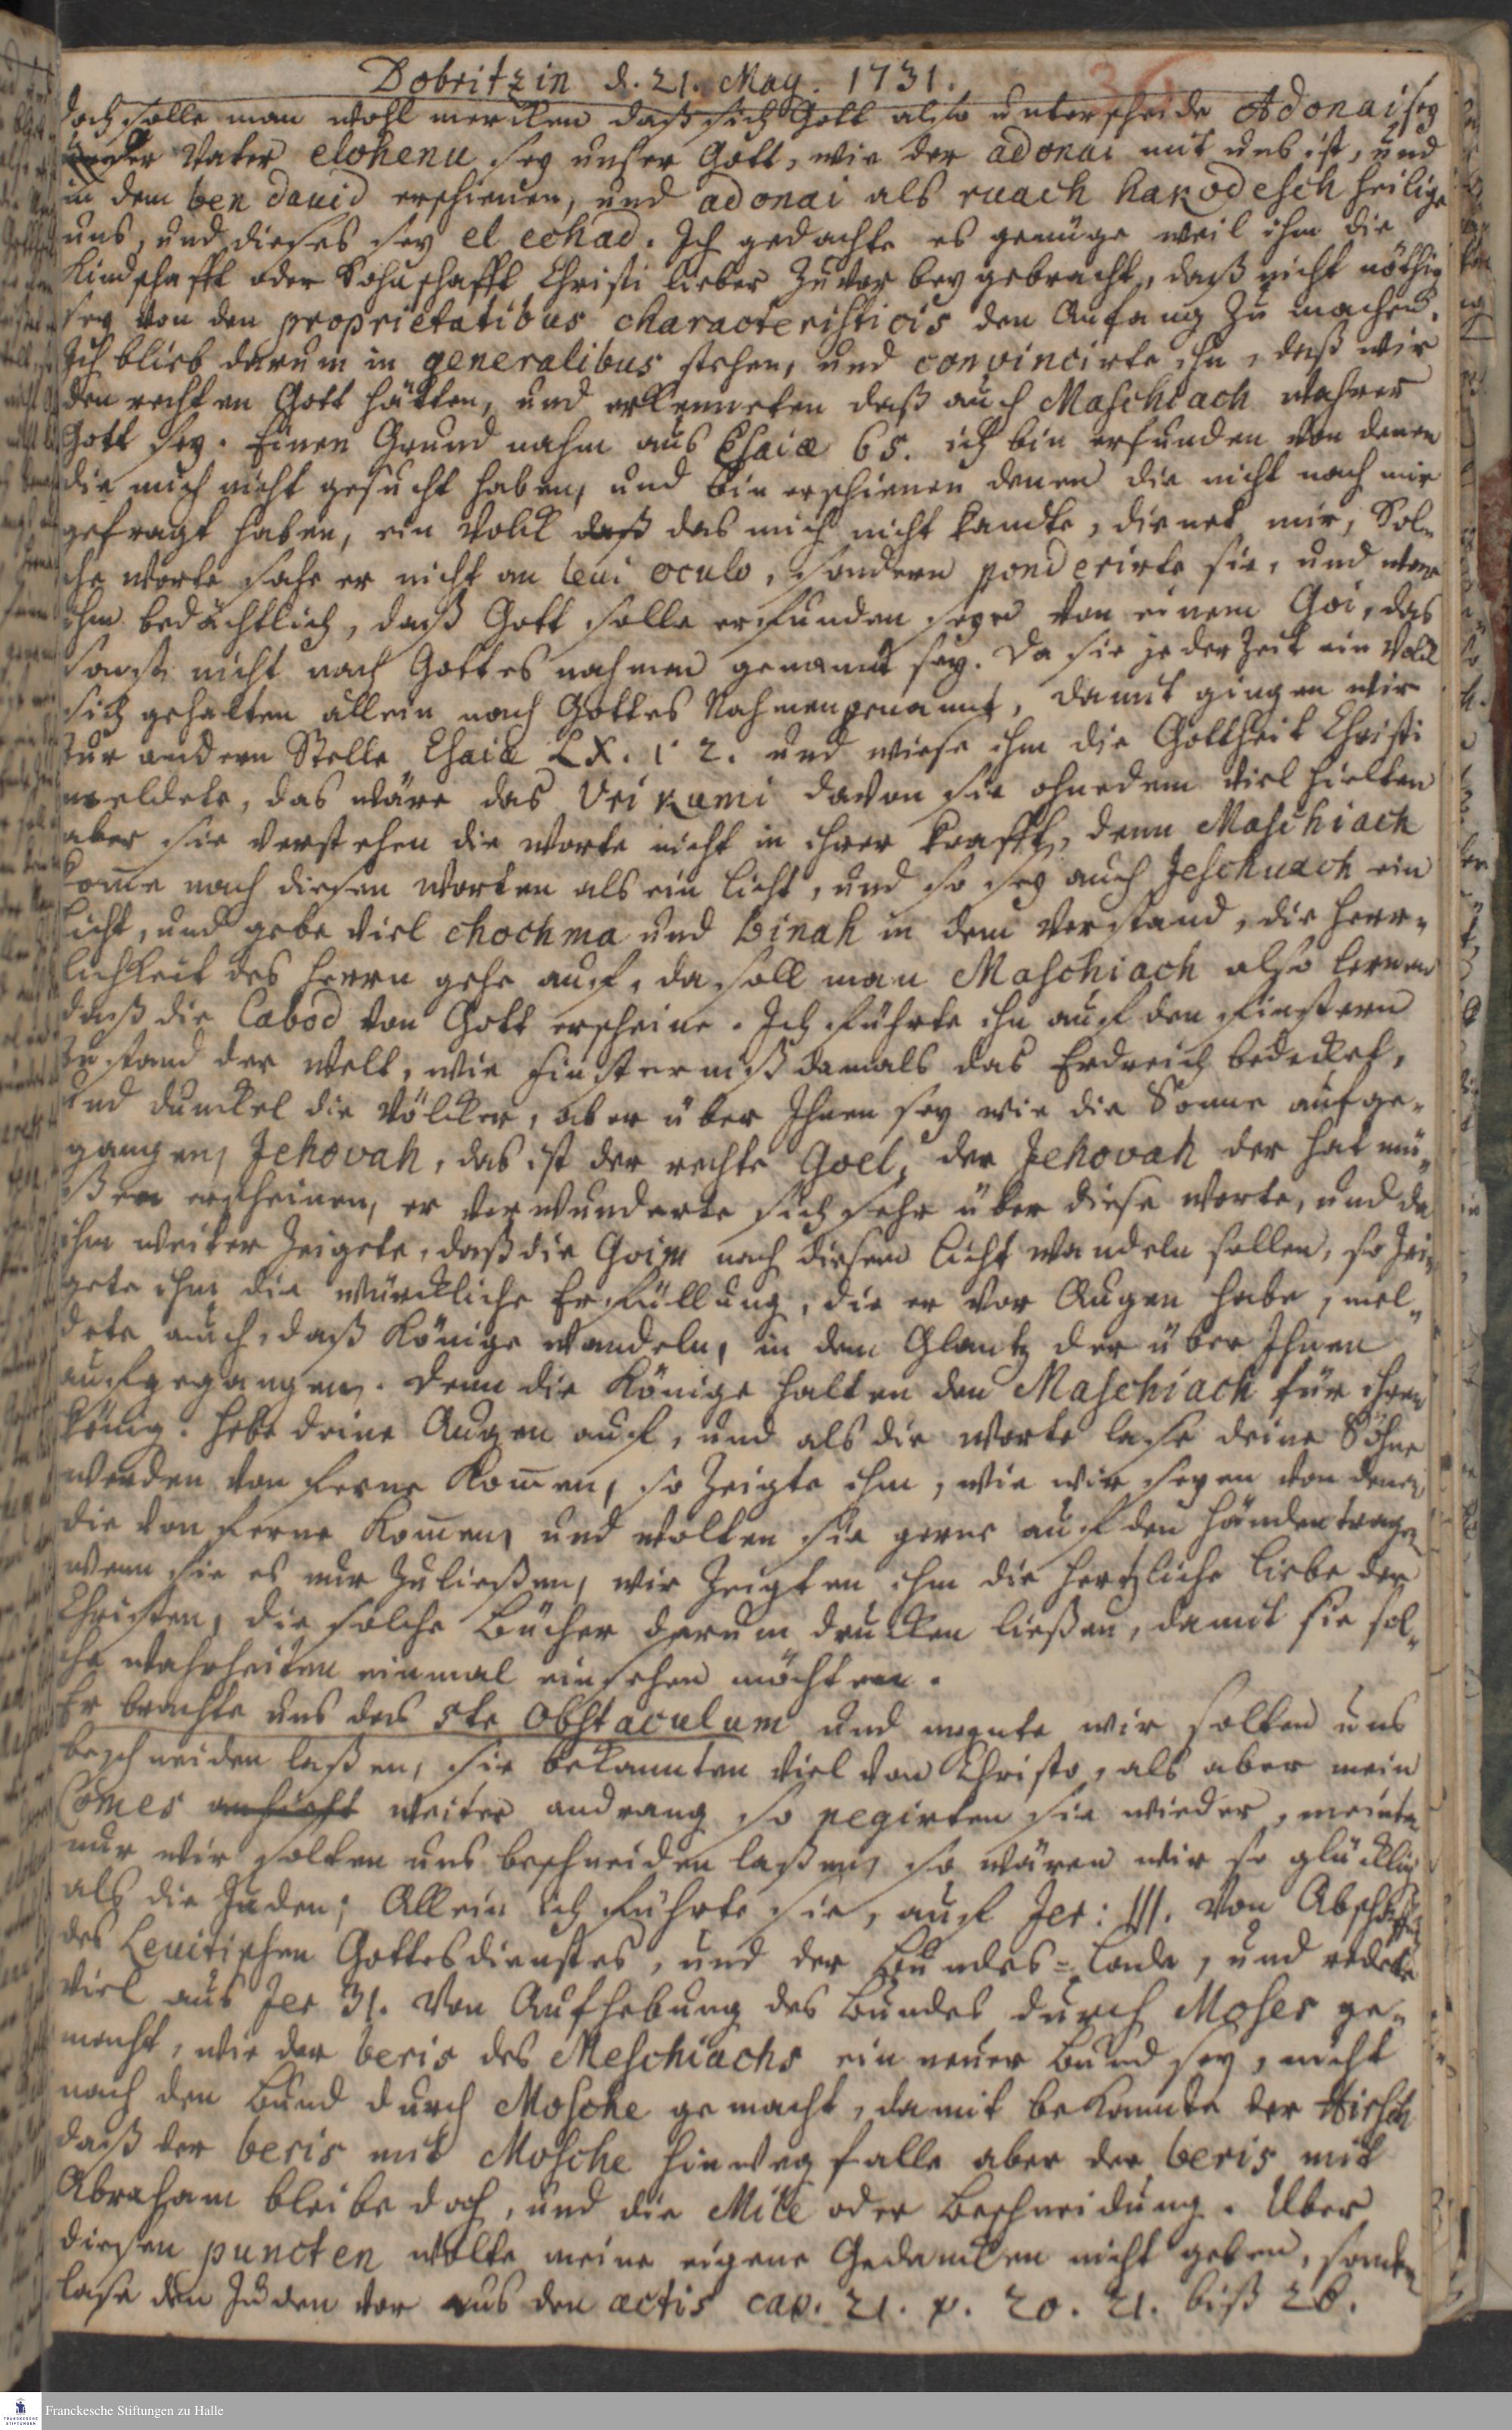 Dobritzin d. 21. May. 1731.
36
doch solle man wohl mercken daß sich Gott also unterscheide Adonai sey
der Vater elohenu sey unser Gott, wie der adonai mit uns ist, und
in dem ben david erschienen, und adonai als ruach hakodesch heilige
uns, und dieses sey el echad. Ich gedachte es genüge weil ihm die
Kindschafft oder Sohnschafft Christi lieber zuvor beygebracht, daß nicht nöthig
sey von den proprietatibus characteristicis den Anfang zu machen.
Ich blieb darum in generalibus stehen, und convincirte ihn, daß wir
den rechten Gott hätten, und erkenneten daß auch Maschiach wahrer
Gott sey. Einen Grund nahm aus Esaiæ 65. ich bin erfunden von denen
die mich nicht gesucht haben, und bin erschienen denen die nicht nach mir
gefragt haben, ein Volck daß das mich nicht kandte, dienet mir, Sol-
che Worte sahe er nicht an levi oculo, sondern ponderirte sie, und war
ihm bedächtlich, daß Gott solle erfunden seyn von einem Goi, das
sonst nicht nach Gottes nahmen genannt sey. Da sie jederzeit ein Volck
sich gehalten allein nach Gottes Nahmen genannt, damit gingen wir
zur andern Stelle Esaiæ LX. 1 2. und wiese ihm die Gottheit Christi
meldete, das wäre das Uri kumi davon sie ohnedem viel hielten
aber sie verstehen die Worte nicht in ihrer Krafft, denn Maschiach
kome nach diesen Worten als ein Licht, und so sey auch Jeschuach ein
Licht, und gebe viel chochma und binah in dem Verstand, die Herr-
lichkeit des Herrn gehe auf, da soll man Maschiach also lernen
daß die Cabod von Gott erscheine. Ich führte ihn auf den finstern
Zustand der Welt, wie Finsterniß damals das Erdreich bedecket,
und dunckel die Völcker, aber über Ihnen sey wie die Sonne aufge-
gangen, Jehovah, das ist der rechte Goel, der Jehovah der hat mü-
ßen erscheinen, er verwunderte sich sehr über diese Worte, und da
ihm weiter zeigete, daß die Goim nach diesem Licht wandeln sollen, so zei-
gete ihm die würckliche Erfüllung, die er vor Augen habe, mel-
dete auch, daß Könige wandeln, in dem Glantz der über Ihnen
aufgegangen. Denn die Könige halten den Maschiach für ihren
König. Hebe deine Augen auf, und als die Worte lase deine Söhne
werden von ferne komen, so zeigte ihm, wie wir seyen von denen
die von ferne komen, und wolten sie gerne auf den Händen tragen
wenn sie es nur zuließen, wir zeigten ihm die hertzliche Liebe der
Christen, die solche Bücher darum drucken ließen, damit sie sol-
che Wahrheiten einmal einsehen möchten.
Er brachte uns das 5te Obstaculum und meynte wir solten uns
beschneiden laßen, sie bekannten viel von Christo, als aber mein
Comes weiter andrang so negirten sie wieder, meinten
nur wir solten uns beschneiden laßen, so wären wir so glücklich
als die Juden; Allein ich führte sie, auf Jer: III. von Abschaffg
des Levitischen Gottesdienstes, und der Bundes=Lade, und redete
viel aus Jer 31. von Aufhebung des Bundes durch Moses ge-
macht, wie der beris des Meschiachs ein neuer Bund sey, nicht
nach den Bund durch Mosche gemacht, damit bekannte der Hirsch
daß der beris mit Mosche hinweg falle aber der beris mit
Abraham bleibe doch, und die Mile oder Beschneidung. Über
diesen puncten wolte meine eigene Gedancken nicht geben, sondern
lase den Juden vor aus den actis cap. 21. v. 20. 21. biß 26.
Franckesche Stiftungen zu Halle